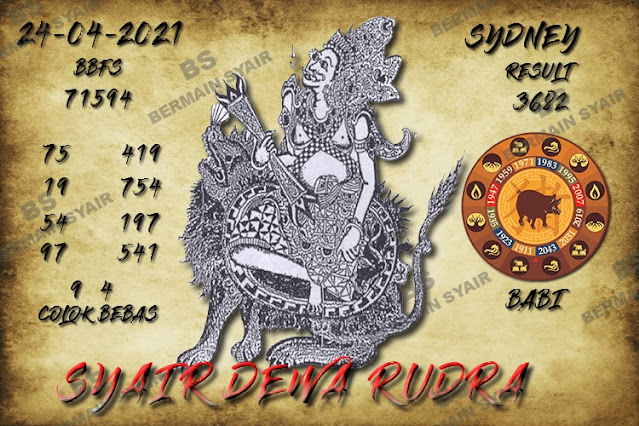 24-04-2021
BBFS
71594
75 419
19 754
54 197
97 541
9 4
COLOK BEBAS
SYDNEY
RESULT
3682
1935 1947 1959 1971 1983 1995 2007 2019 2031 2043 1911 1923
BABI
BS
BERMAIN SYAIR
SYAIR DEWA RUDRA